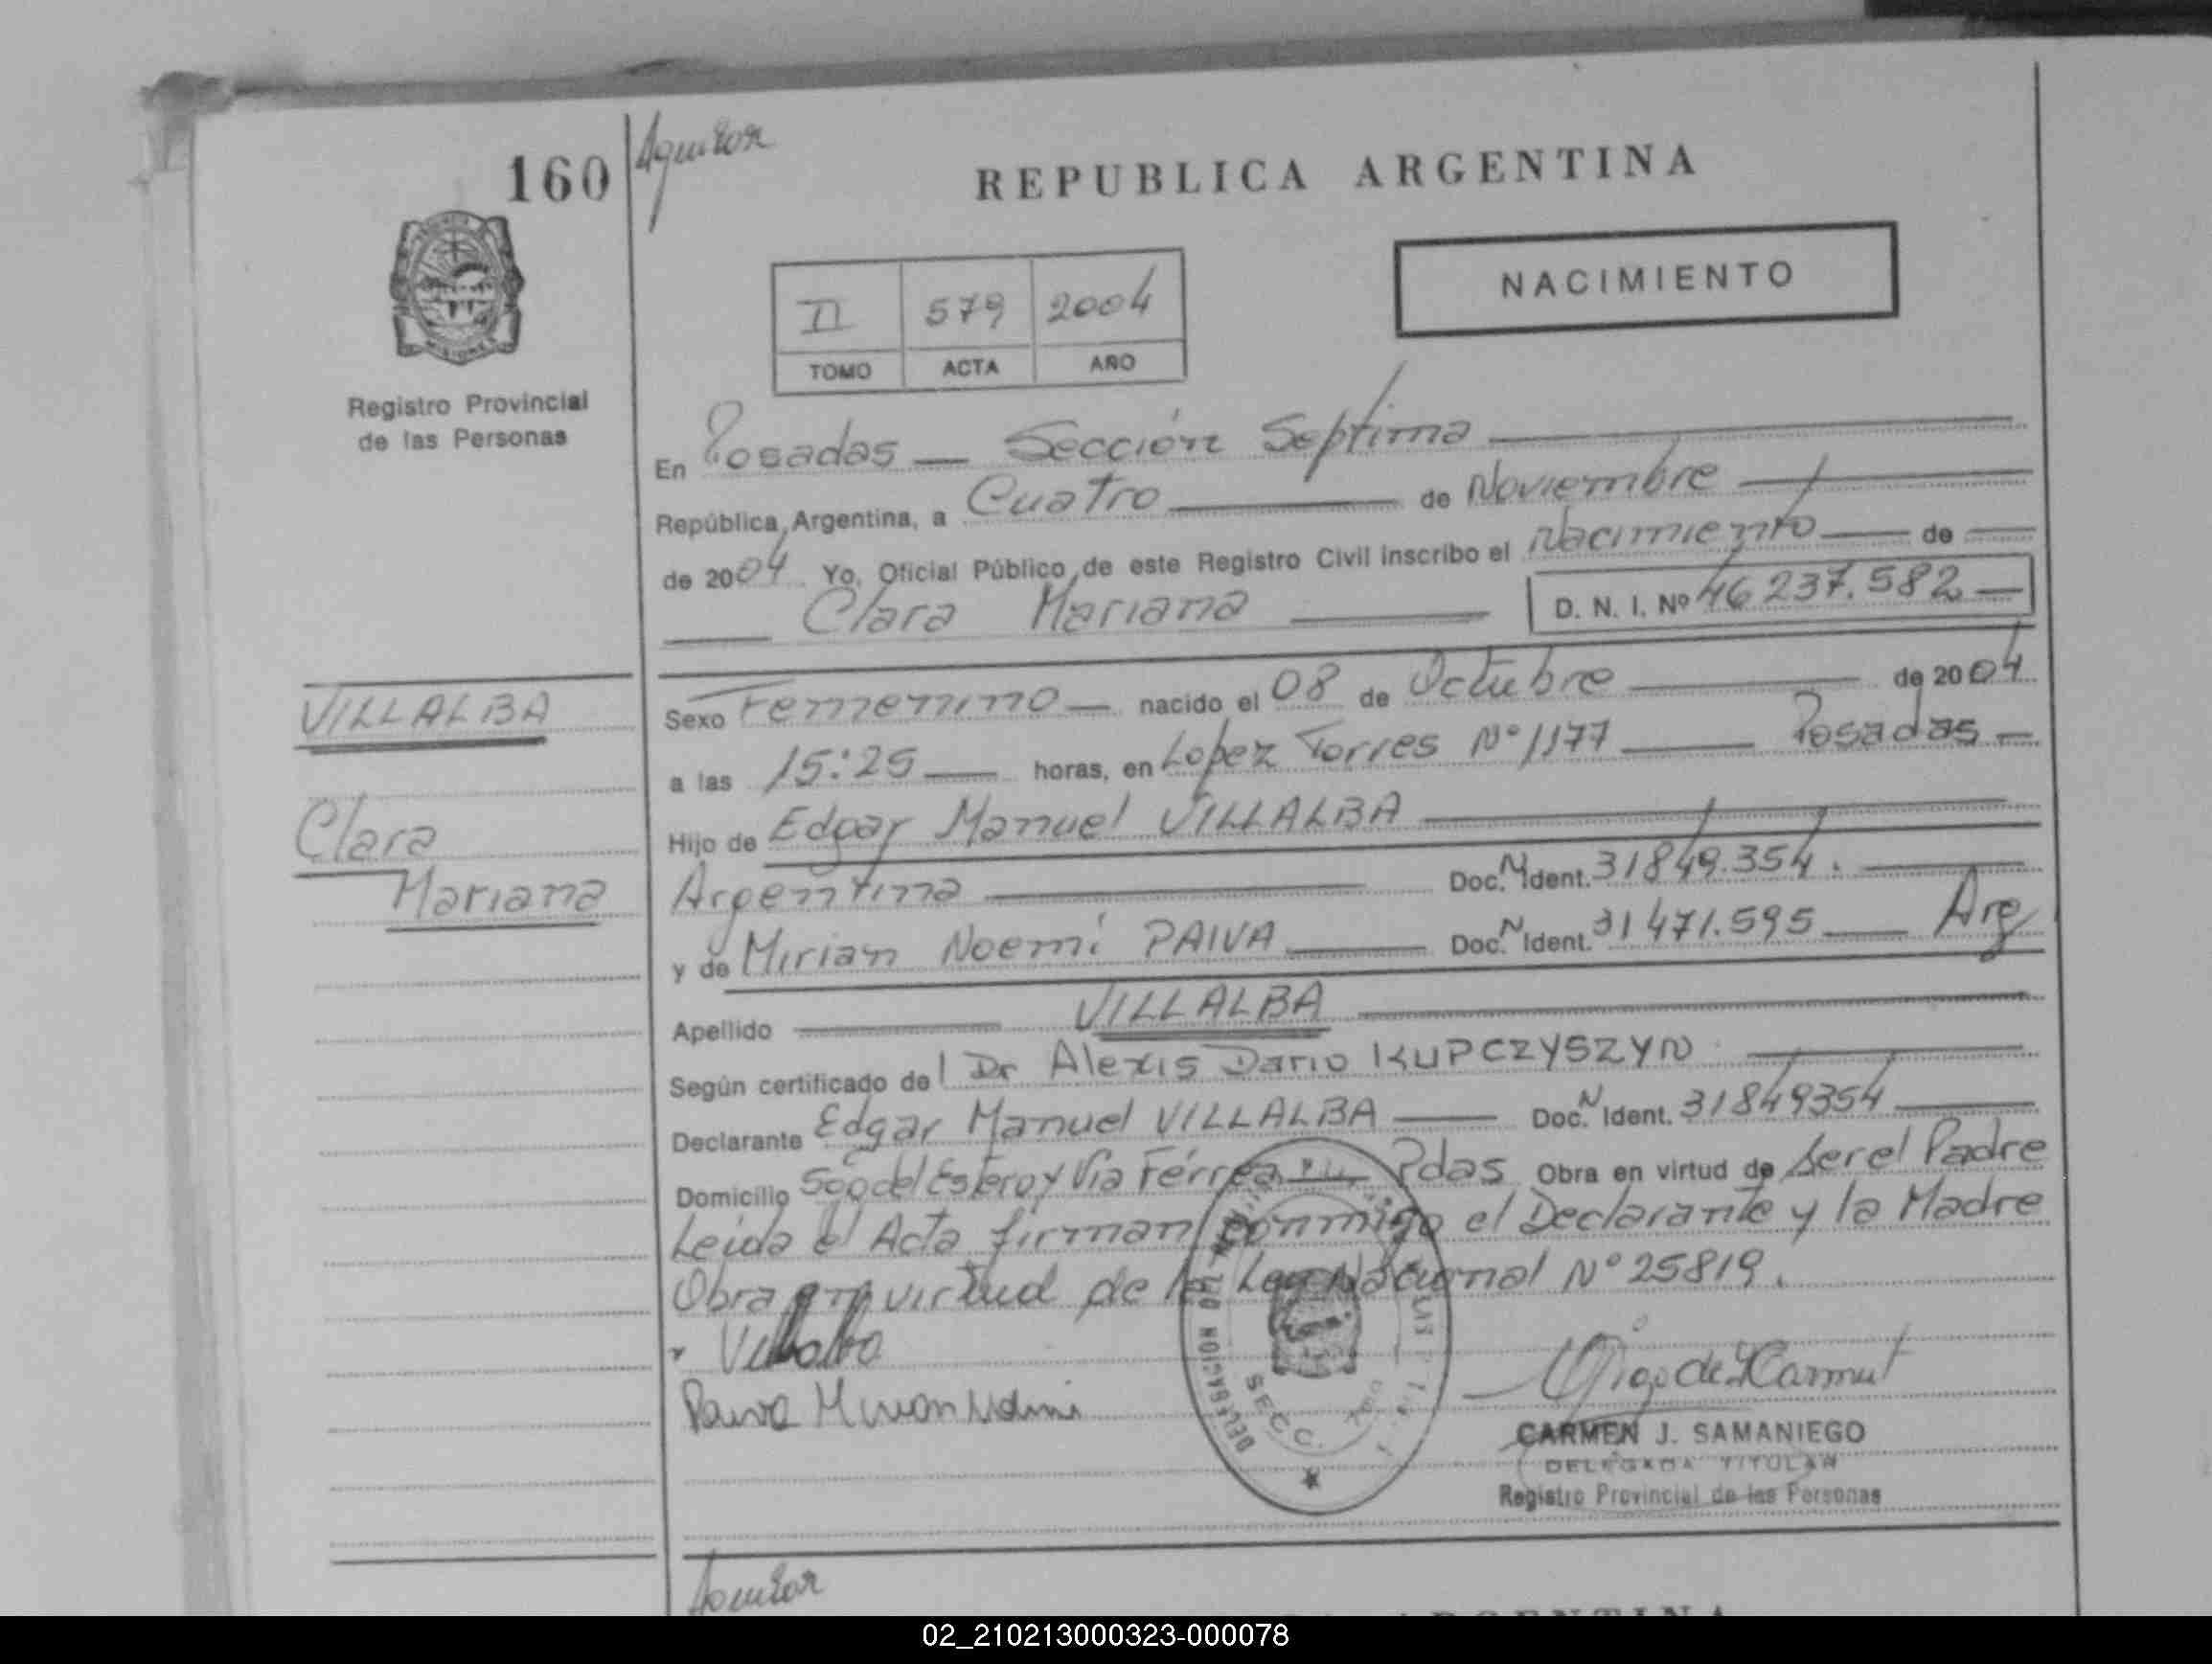 160
Aguilar
REPUBLICA ARGENTINA
MISIONES
Registro Provincial
de las Personas
II 579 2004
TOMO ACTA AÑO
NACIMIENTO
En Posadas — Sección Septima
República Argentina, a Cuatro de Noviembre
de 2004 Yo, Oficial Público de este Registro Civil inscribo el Nacimiento de
Clara Mariana D. N. I. Nº 46 237.582
VILLALBA
Clara
Mariana
Sexo Femenino nacido el 08 de Octubre de 2004
a las 15:25 horas, en Lopez Torres N° 1177 Posadas
Hijo de Edgar Manuel VILLALBA
Argentina Doc. N Ident. 31849.354.
y de Mirian Noemí PAIVA Doc. N Ident. 31471.595 Arg
Apellido VILLALBA
Según certificado del Dr Alexis Dario KUPCZYSZYN
Declarante Edgar Manuel VILLALBA Doc. N Ident. 31849354
Domicilio Sgo del Estero y Via Férrea Pdas Obra en virtud de ser el Padre
Leída el Acta firman conmigo el Declarante y la Madre
Obra en virtud de la Ley Nacional N° 25819.
Villalba
Paiva Mirian Noemi
DELEGACION
SECC.
CARMEN J. SAMANIEGO
DELEGADA TITULAR
Registro Provincial de las Personas
Aguilar
ARGENTINA
02_210213000323-000078